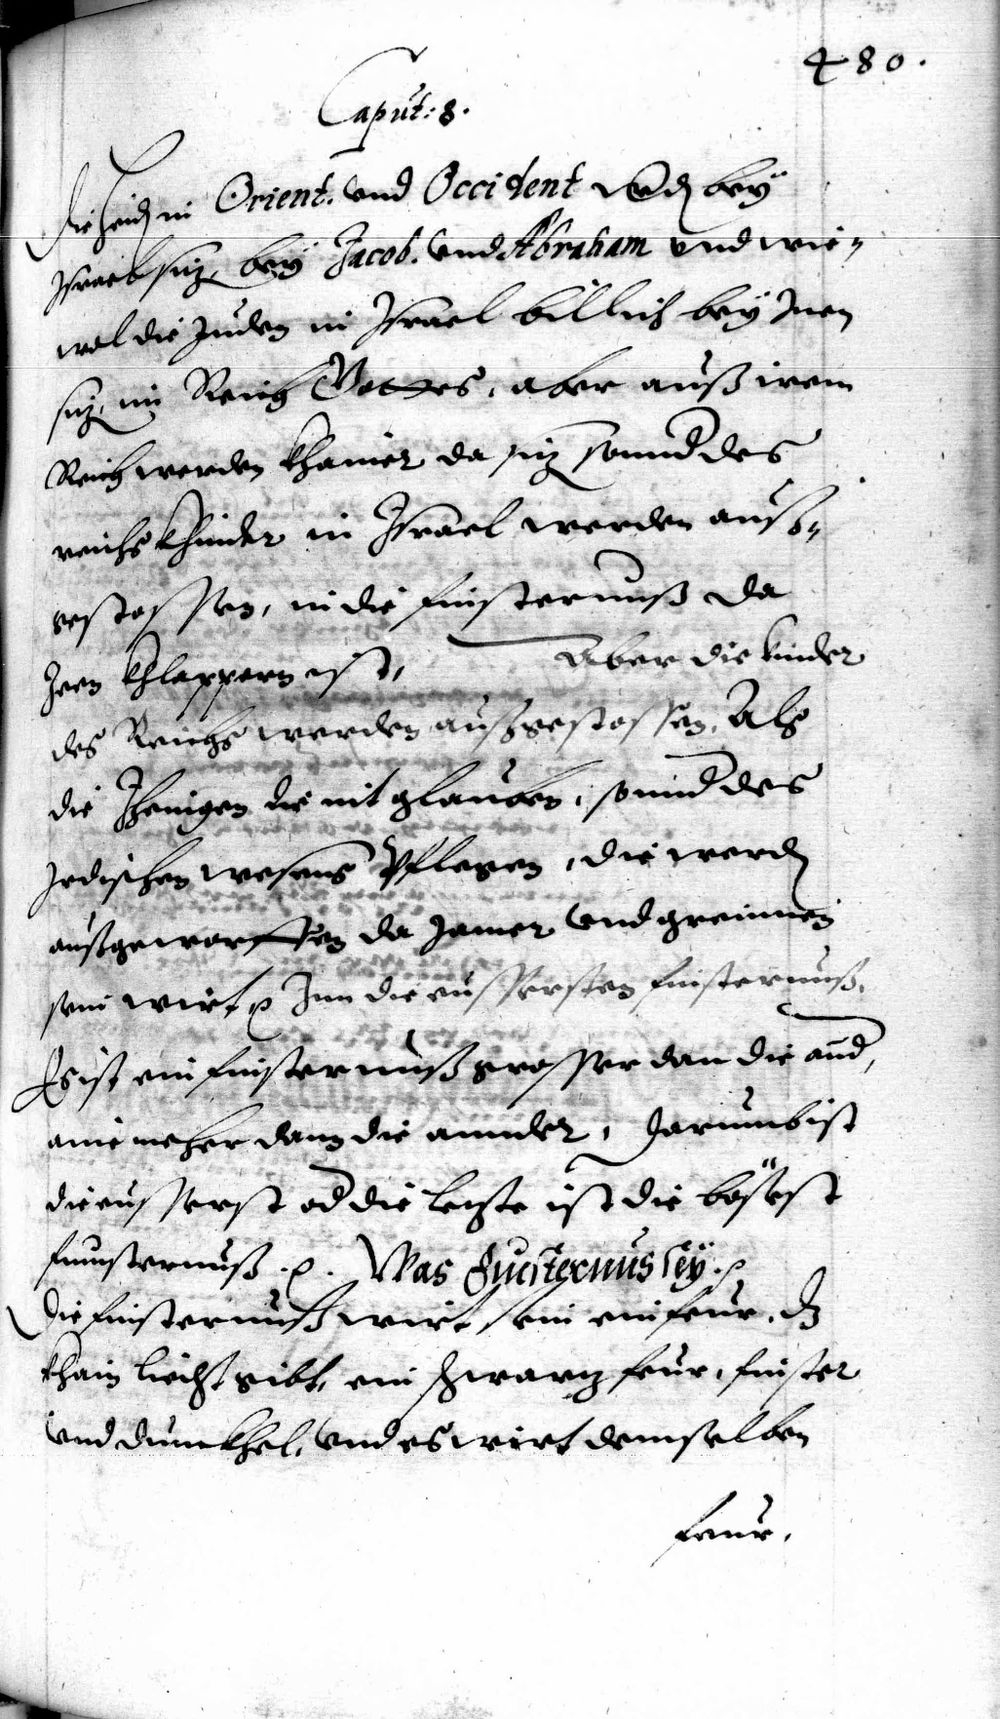 480.
Caput: 8.
die heiden in Orient. vnd Occident werden bey
Israel sitzen, bey Jacob. vnd Abraham vnd wie-
wol die Juden in Israel billich bey Inen
sitzen, im Reich Gottes, aber auß irem
Reich werden khainer da sitzen sonnder des
reichs khinder in Israel werden auß-
gestossen, in die finsternuß da
Zeen khlappern ist, Aber die kinder
des Reichs werden außgestossen, Als
die Jhenigen die nit glauben, sonnder des
Jrdischen wesens Pflegen, die werden
außgeworffen da Jamer vnd greinnen
sein wirt p Inn die eusserste finsternuß,
Es ist ein finsternuß grosser dan die annder,
aine meher dann die annder, darumb ist
die eusserst oder die letste ist die bösest
finnsternuß .p. Was finsternus sey .p
Die finsternuß wirt sein ein feur, das
khain liecht gibt, ein schwartz feur, finster
vnd dunckhel, vnd es wirt demselben
feur,